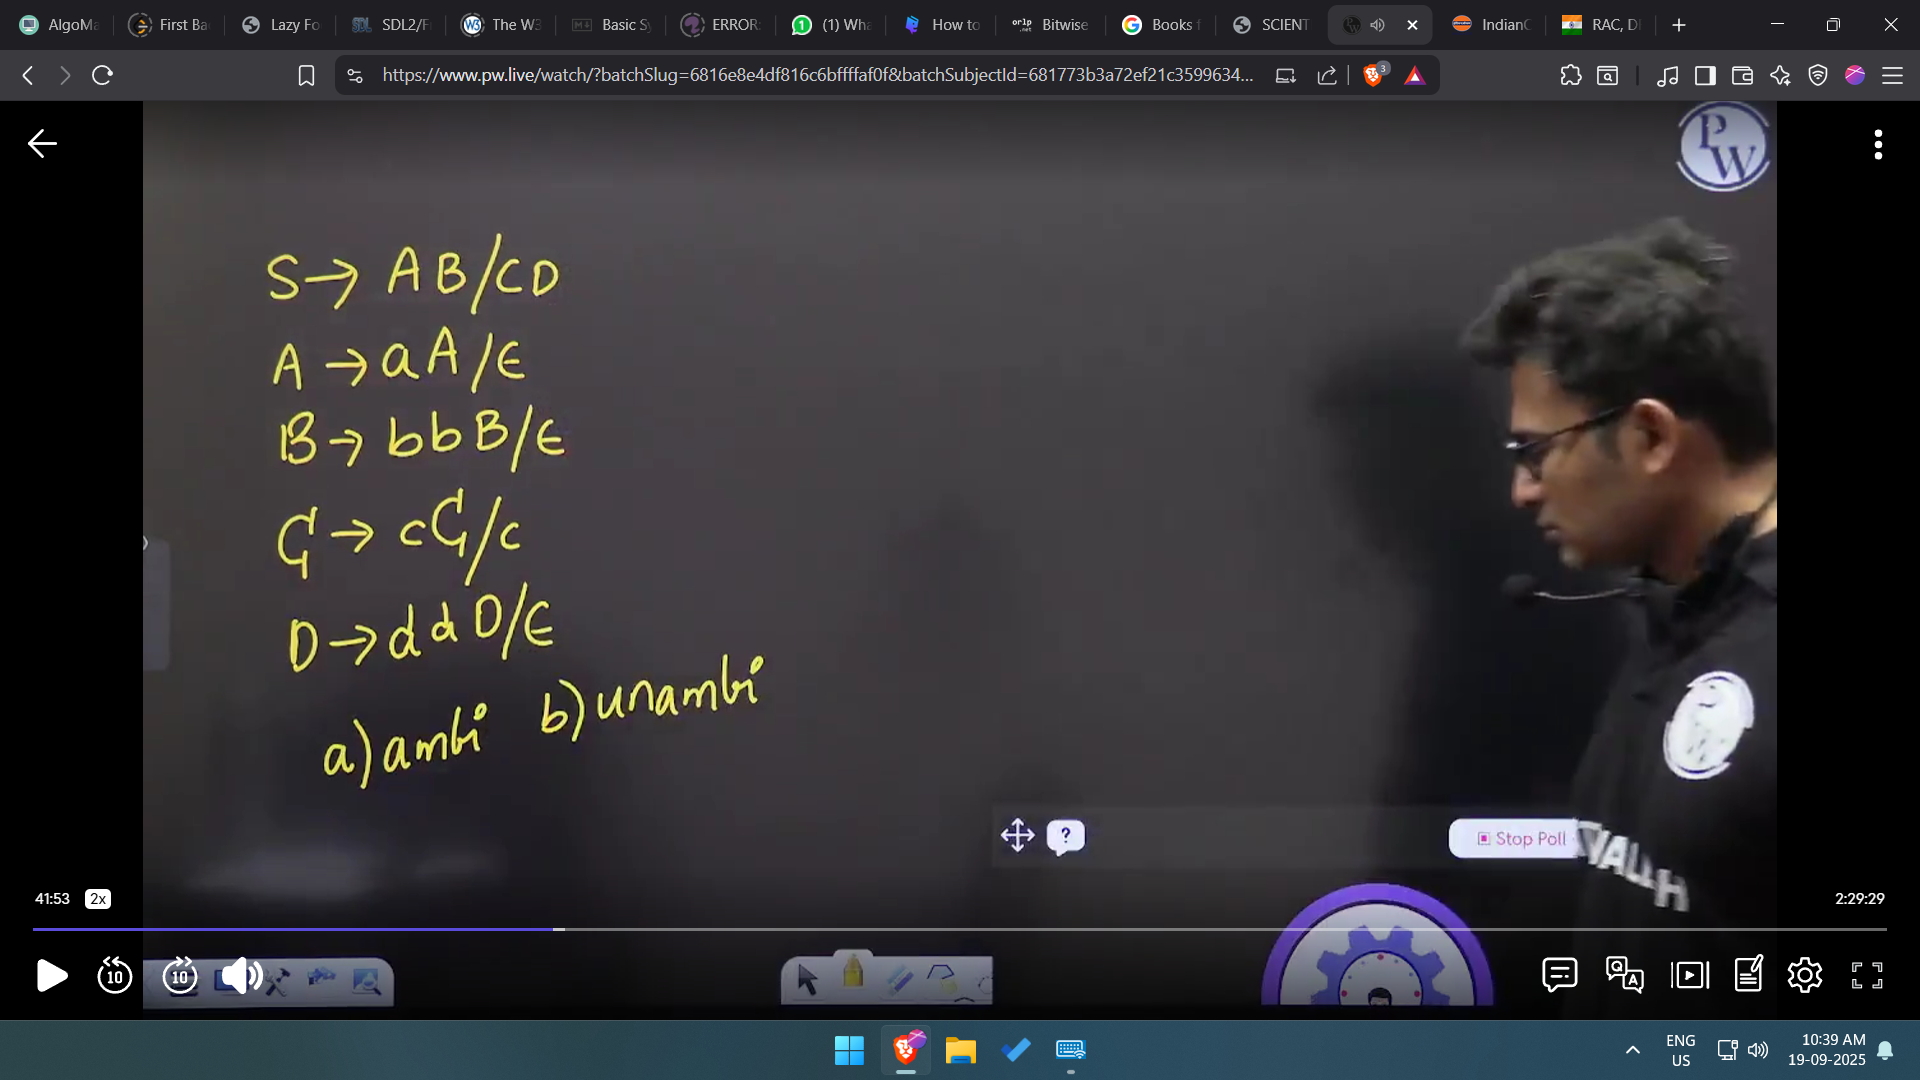 AlgoMa
First Ba
Lazy Fo
SDL2/Fi
The W3
Basic Sy
ERROR:
(1) Wha
How to
Bitwise
Books f
SCIENT
IndianC
RAC, DI
https://www.pw.live/watch/?batchSlug=6816e8e4df816c6bffffaf0f&batchSubjectId=681773b3a72ef21c3599634...
3
PW
S → AB/CD
A → aA/ϵ
B → bbB/ϵ
C → cC/c
D → ddD/ϵ
a) ambi b) unambi
?
Stop Poll
41:53 2x
2:29:29
10
10
ENG
US
10:39 AM
19-09-2025